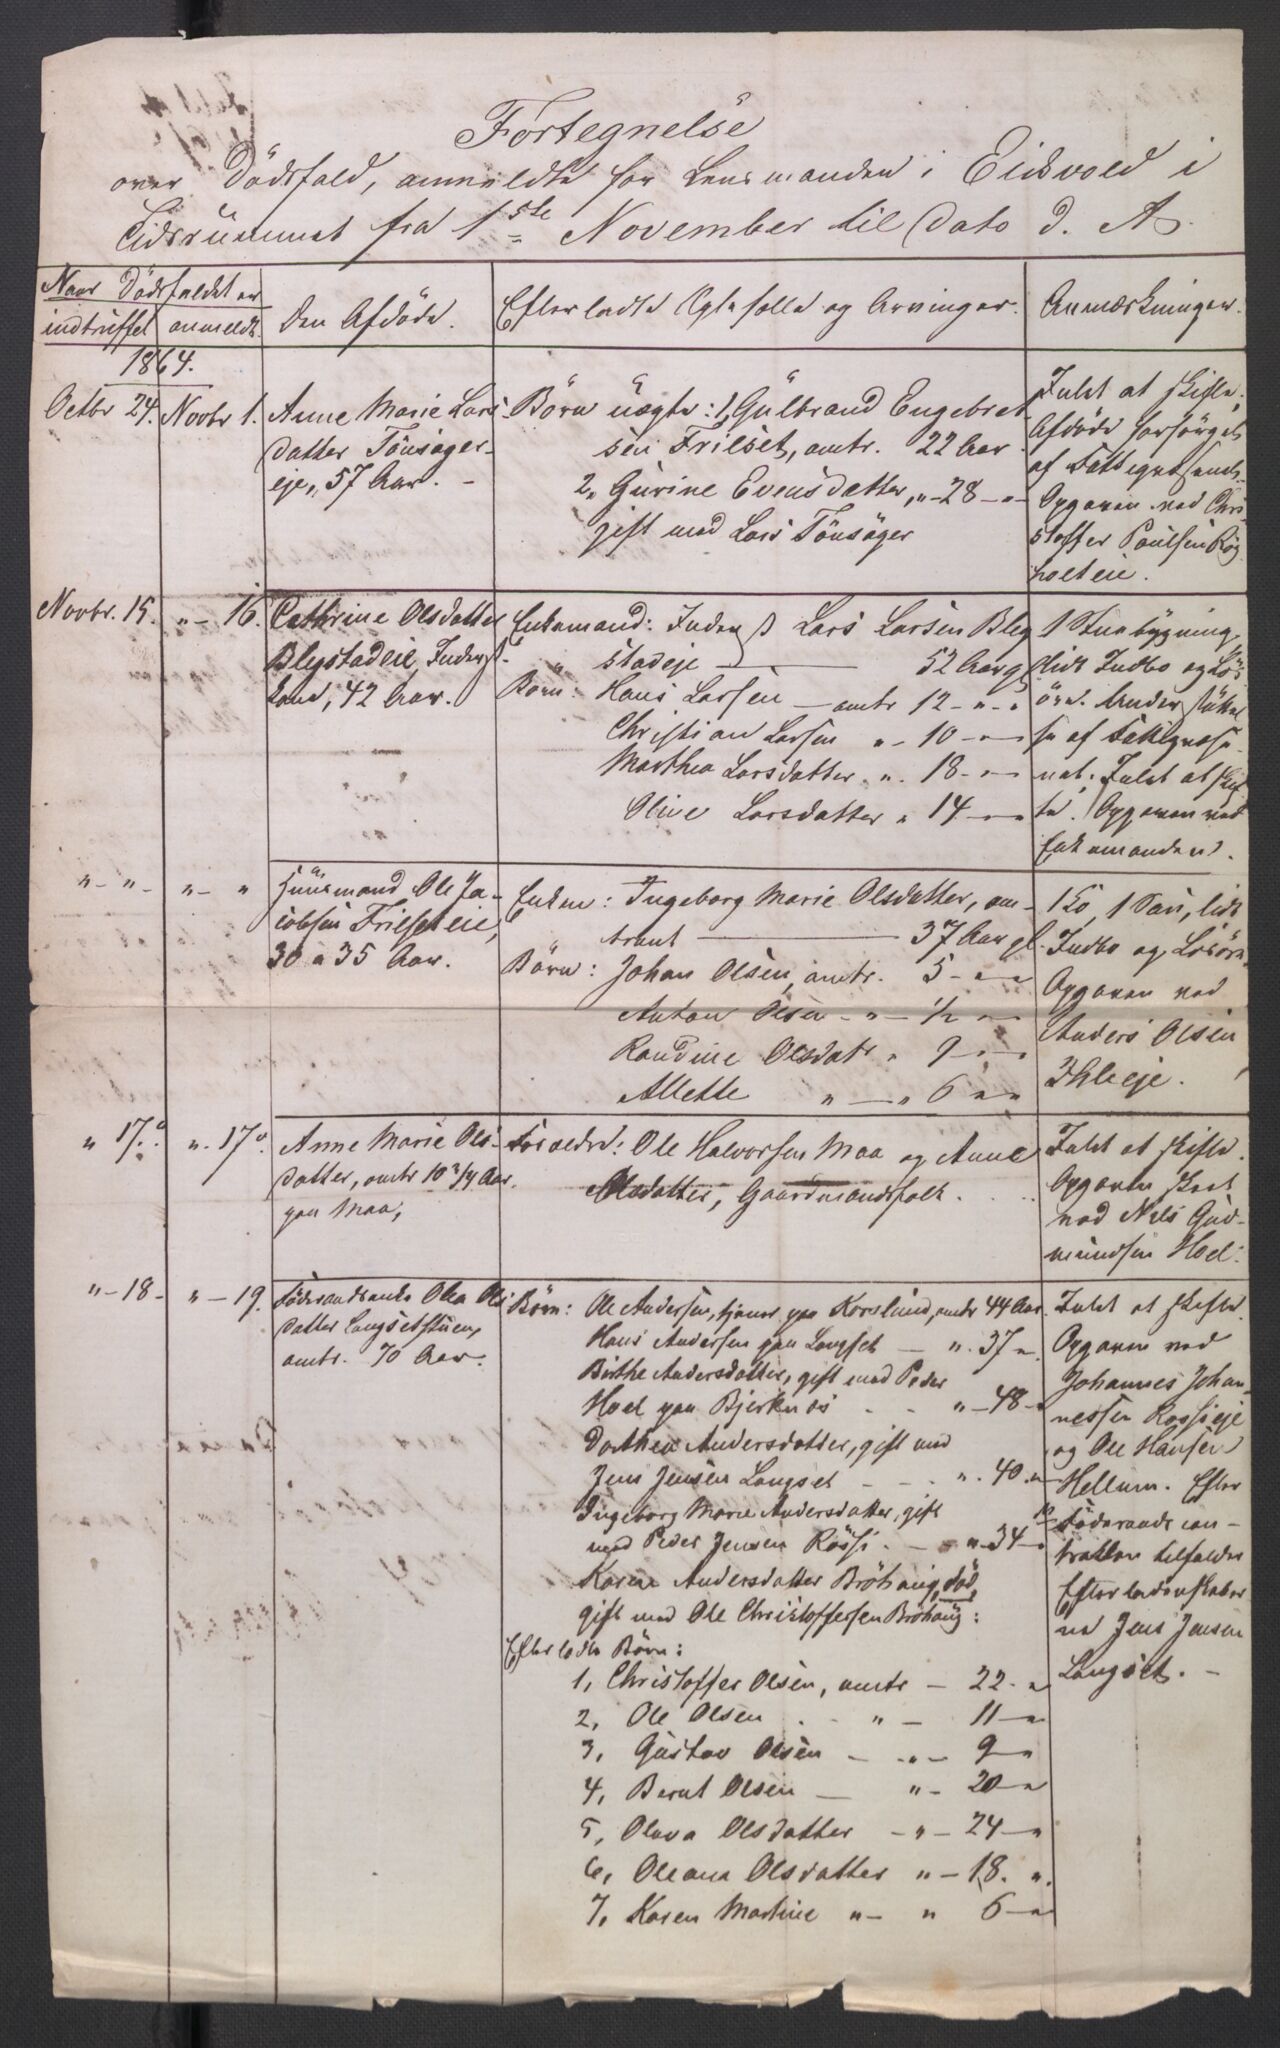 Fortegnelse
over Dödsfald, anmeldte for Lensmanden i Eidsvold i
Tidsrummet fra 1ste November til Dato d. A.
Naar Dödsfaldet er
indtruffet
anmeldt.
Den Afdöde.
Efterladte Ægtefælle og Arvinger.
Anmærkninger.
1864.
Octbr 24.
Novbr 1.
Anne Marie Lars
datter Tönsager-
eje, 57 Aar. -
Börn uægte: 1, Gulbrand Engebret
sen Frilset, omtr. 22 Aar
2, Gurine Evensdatter, " - 28 - " -
gift med Lars Tönsager
Intet at skifte,
Afdöde forsörget
af Fattigvæsenet.
Opgaven ved Chri-
stoffer Paulsen Røg
holteie.
Novbr. 15.
" - 16.
Cathrine Olsdatter
Blegstadeie, Inderst-
kone, 42 Aar.
Enkemand: Inderst Lars Larsen Bleg
stadeje — 52 Aar gl
Börn: Hans Larsen — omtr 12 - " -
Christian Larsen " - 10 - " -
Marthea Larsdatter " - 18 - " -
Oline Larsdatter " 14 - " -
1 Stuebygning,
lidt Indbo og Lös-
öre. Understöttel
se af Fattigvæse-
net. Intet at skif-
te. Opgaven ved
Enkemanden.
" - " -
" - "
Huusmand Ole Ja-
cobsen Frilseteie,
30 a 35 Aar.
Enken: Ingeborg Marie Olsdatter, om-
trent — 37 Aar gl.
Börn: Johan Olsen, omtr. 5 - " -
Anton Olsen - " - 1/2 - " -
Randine Olsdatr " 9 - " -
Allette " - " 6 - " -
1 Ko, 1 Sau, lidt
Indbo og Lösöre.
Opgaven ved
Anders Olsen
Ihleeje.
" 17.
" 17.
Anne Marie Ols-
datter, omtr 10 3/4 Aar.
paa Maa,
Forældre: Ole Halvorsen Maa og Anne
Olsdatter, Gaardmandsfolk.
Intet at skifte.
Opgaven skeet
ved Nils Gud-
mundsen Hoel.
" - 18 -
" - 19.
Föderaadsenke Olea Ols
datter Langsetstuen,
omtr. 70 Aar.
Börn: Ole Andersen, tjener paa Korslund, omtr 44 Aar.
Hans Andersen paa Langset — " 37 ".
Birthe Andersdatter, gift med Peder
Hoel paa Bjerknæs " - 48 -
Dorthea Andersdatter, gift med
Jens Jensen Langset - - " . 40 . "
Ingeborg Marie Andersdatter, gift
med Peder Jensen Rössi. - " - 34 -
Karen Andersdatter Bröhaug, död,
gift med Ole Christoffersen Bröhaug:
Efterladte Börn:
1, Christoffer Olsen, omtr — 22 - "
2, Ole Olsen . . " - 11 - "
3, Gustav Olsen — " - 9 - "
4, Bernt Olsen — " - 20 - "
5, Olava Olsdatter - " - 24 - "
6, Oleana Olsdatter " - 18. ".
7, Karen Martine " - " 6 - "
Intet at skifte.
Opgaven ved
Johannes Johan-
nessen Rossieje
og Ole Hansen
Hellum. Efter
Föderaadscon-
trakten tilfalder
Efterladenskaber
ne Jens Jensen
Langset. -